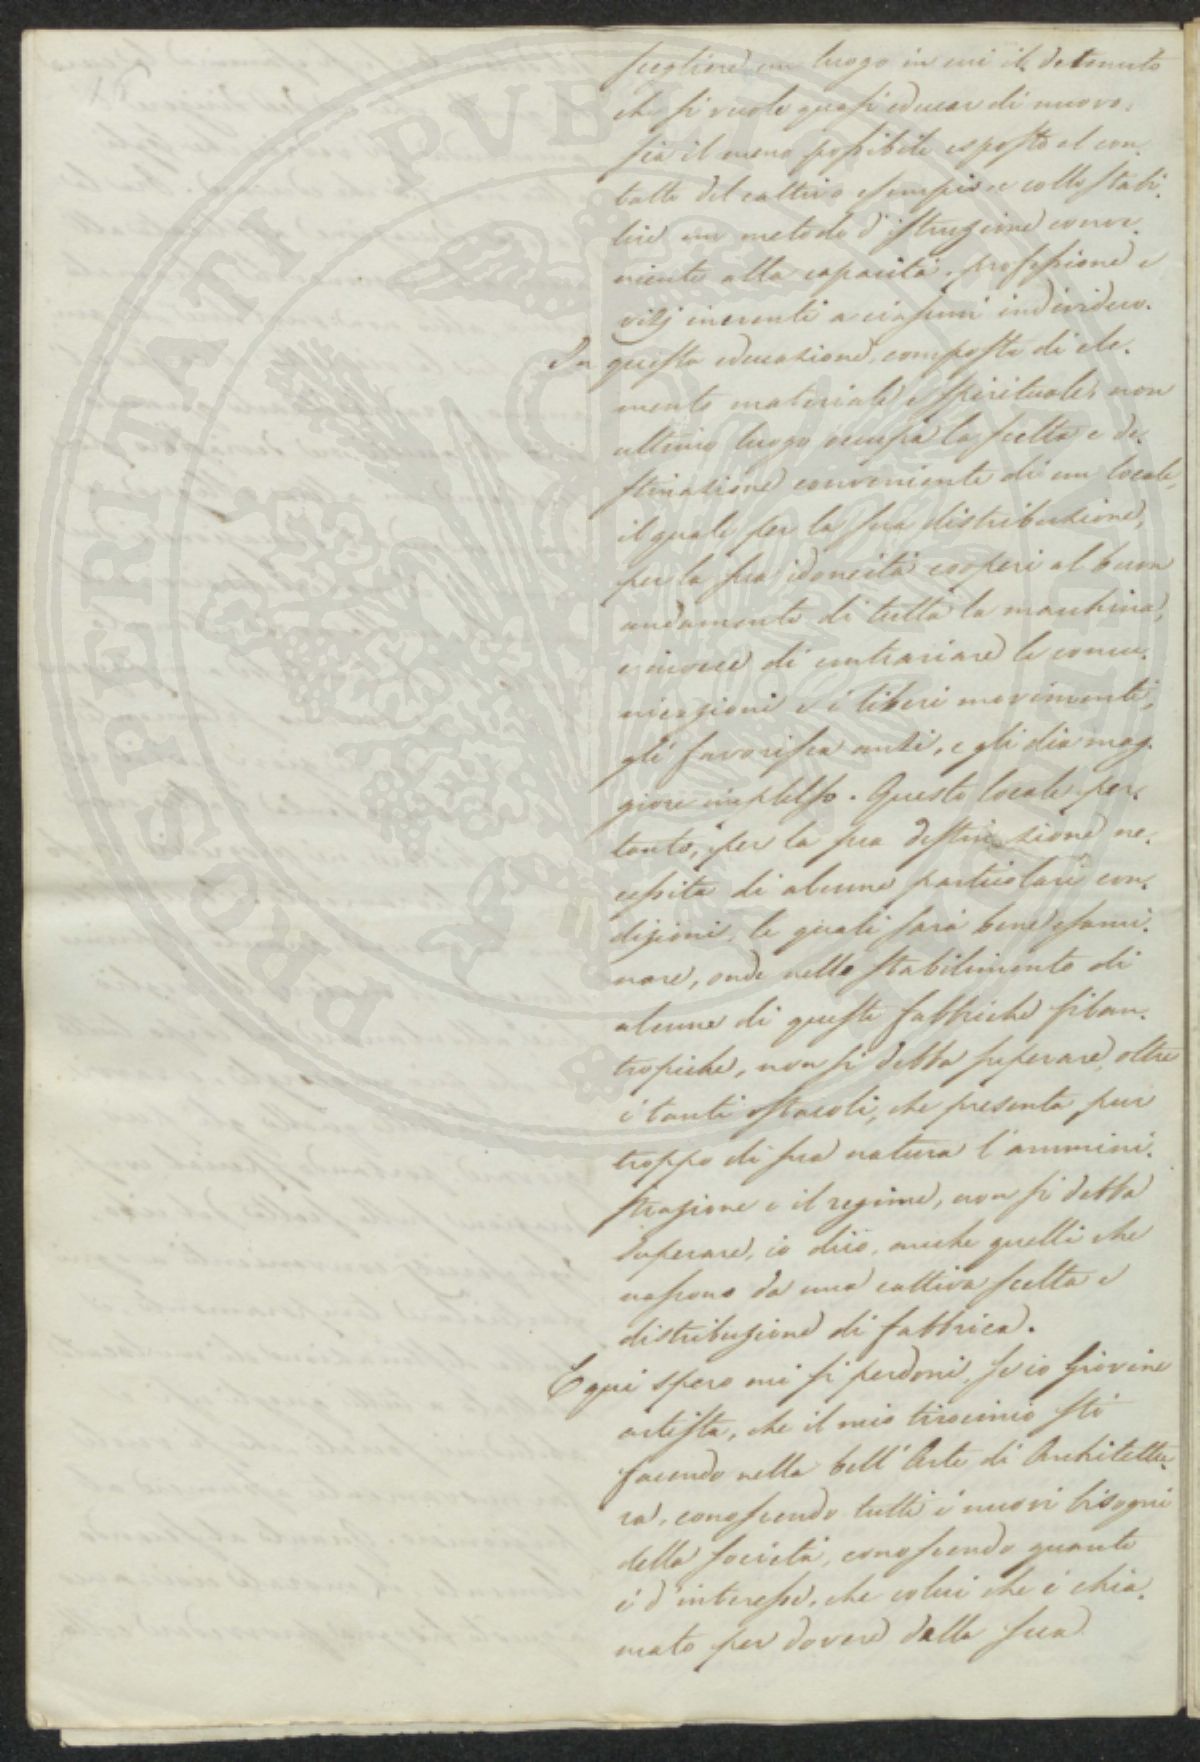 scegliere un luogo in cui il detenuto
che si vuole quasi educar di nuovo,
sia il meno possibile esposto al con.
tatto del cattivo esempio e collo stabi.
lire un metodo d'istruzione conve.
niente alla capacità, professione e
vizj inerenti a ciascun individuo.
In questa educazione, composta di ele.
mento materiale e spirituale, non
ultimo luogo occupa la scelta e de.
stinazione conveniente di un locale,
il quale per la sua distribuzione,
per la sua idoneità cooperi al buon
andamento di tutta la macchina,
e invece di contrariare le comu.
nicazioni e i liberi movimenti,
gli favorisca anzi, e gli dia mag.
giore impulso. Questo locale per.
tanto, per la sua destinazione ne.
cessita di alcune particolari con.
dizioni, le quali sarà bene esami.
nare, onde nello stabilimento di
alcune di queste fabbriche filan.
tropiche, non si debba superare, oltre
i tanti ostacoli, che presenta pur
troppo di sua natura l'ammini.
strazione e il regime, non si debba
superare, io dico, anche quelli che
nascono da una cattiva scelta e
distribuzione di fabbrica.
E qui spero mi si perdoni, se io Giovine
artista, che il mio tirocinio sto
facendo nella bell'Arte di Architettu.
ra, conoscendo tutti i nuovi bisogni
della società, conoscendo quanto
è d'interesse, che colui che è chia.
mato per dovere dalla sua
PROSPERITATI PVBLICAE